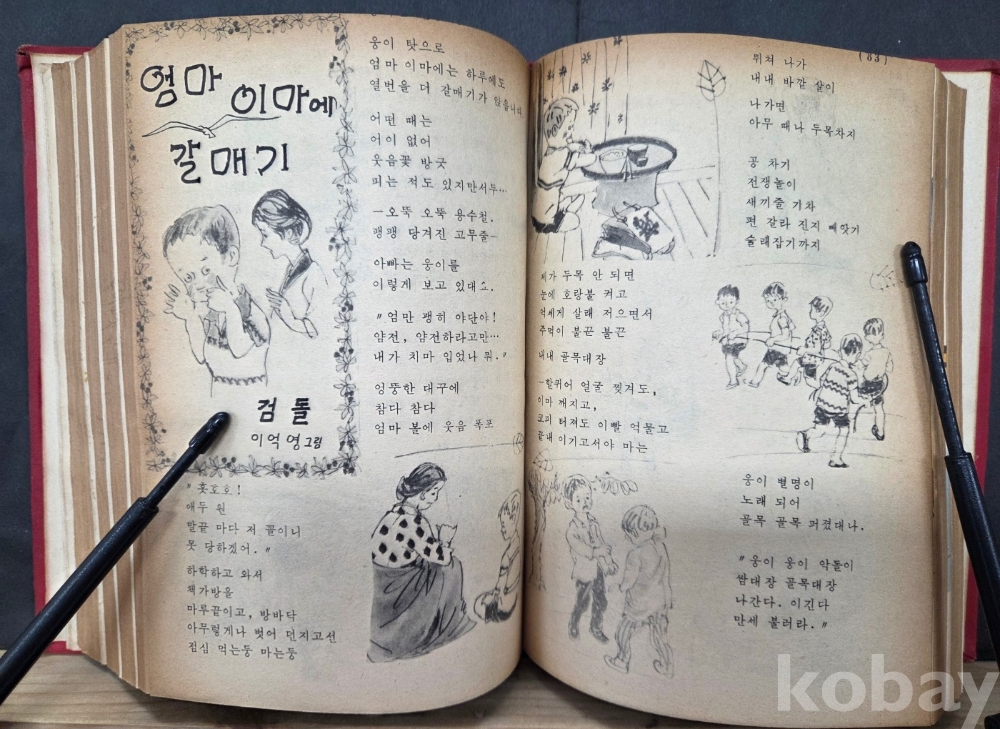 엄마 이마에
갈매기
검돌
이억영 그림
웅이 탓으로
엄마 이마에는 하루에도
열번을 더 갈매기가
어떤 때는
어이 없어
웃음꽃 방긋
피는 적도 있지만서두…
—오뚝 오뚝 용수철,
팽팽 당겨진 고무줄—
아빠는 웅이를
이렇게 보고 있대요.
"엄만 괭히 야단야!
얌전, 얌전하라고만…
내가 치마 입었나 뭐."
엉뚱한 대꾸에
참다 참다
엄마 볼에 웃음 폭포
"홋호호!
얘두 원
말끝 마다 저 꼴이니
못 당하겠어."
하학하고 와서
책가방을
마루끝이고, 방바닥
아무렇게나 벗어 던지고선
점심 먹는둥 마는둥
(83)
뛰쳐 나가
내내 바깥 살이
나가면
아무 때나 두목차지
공 차기
전쟁놀이
새끼줄 기차
편 갈라 진지 빼앗기
술래잡기까지
제가 두목 안 되면
눈에 호랑불 켜고
억세게 살래 저으면서
주먹이 불끈 불끈
내내 골목대장
—할퀴어 얼굴 찢겨도,
이마 깨지고,
코피 터져도 이빨 악물고
끝내 이기고서야 마는
웅이 별명이
노래 되어
골목 골목 퍼졌대나.
"웅이 웅이 악돌이
쌈대장 골목대장
나간다. 이긴다
만세 불러라."
kobay